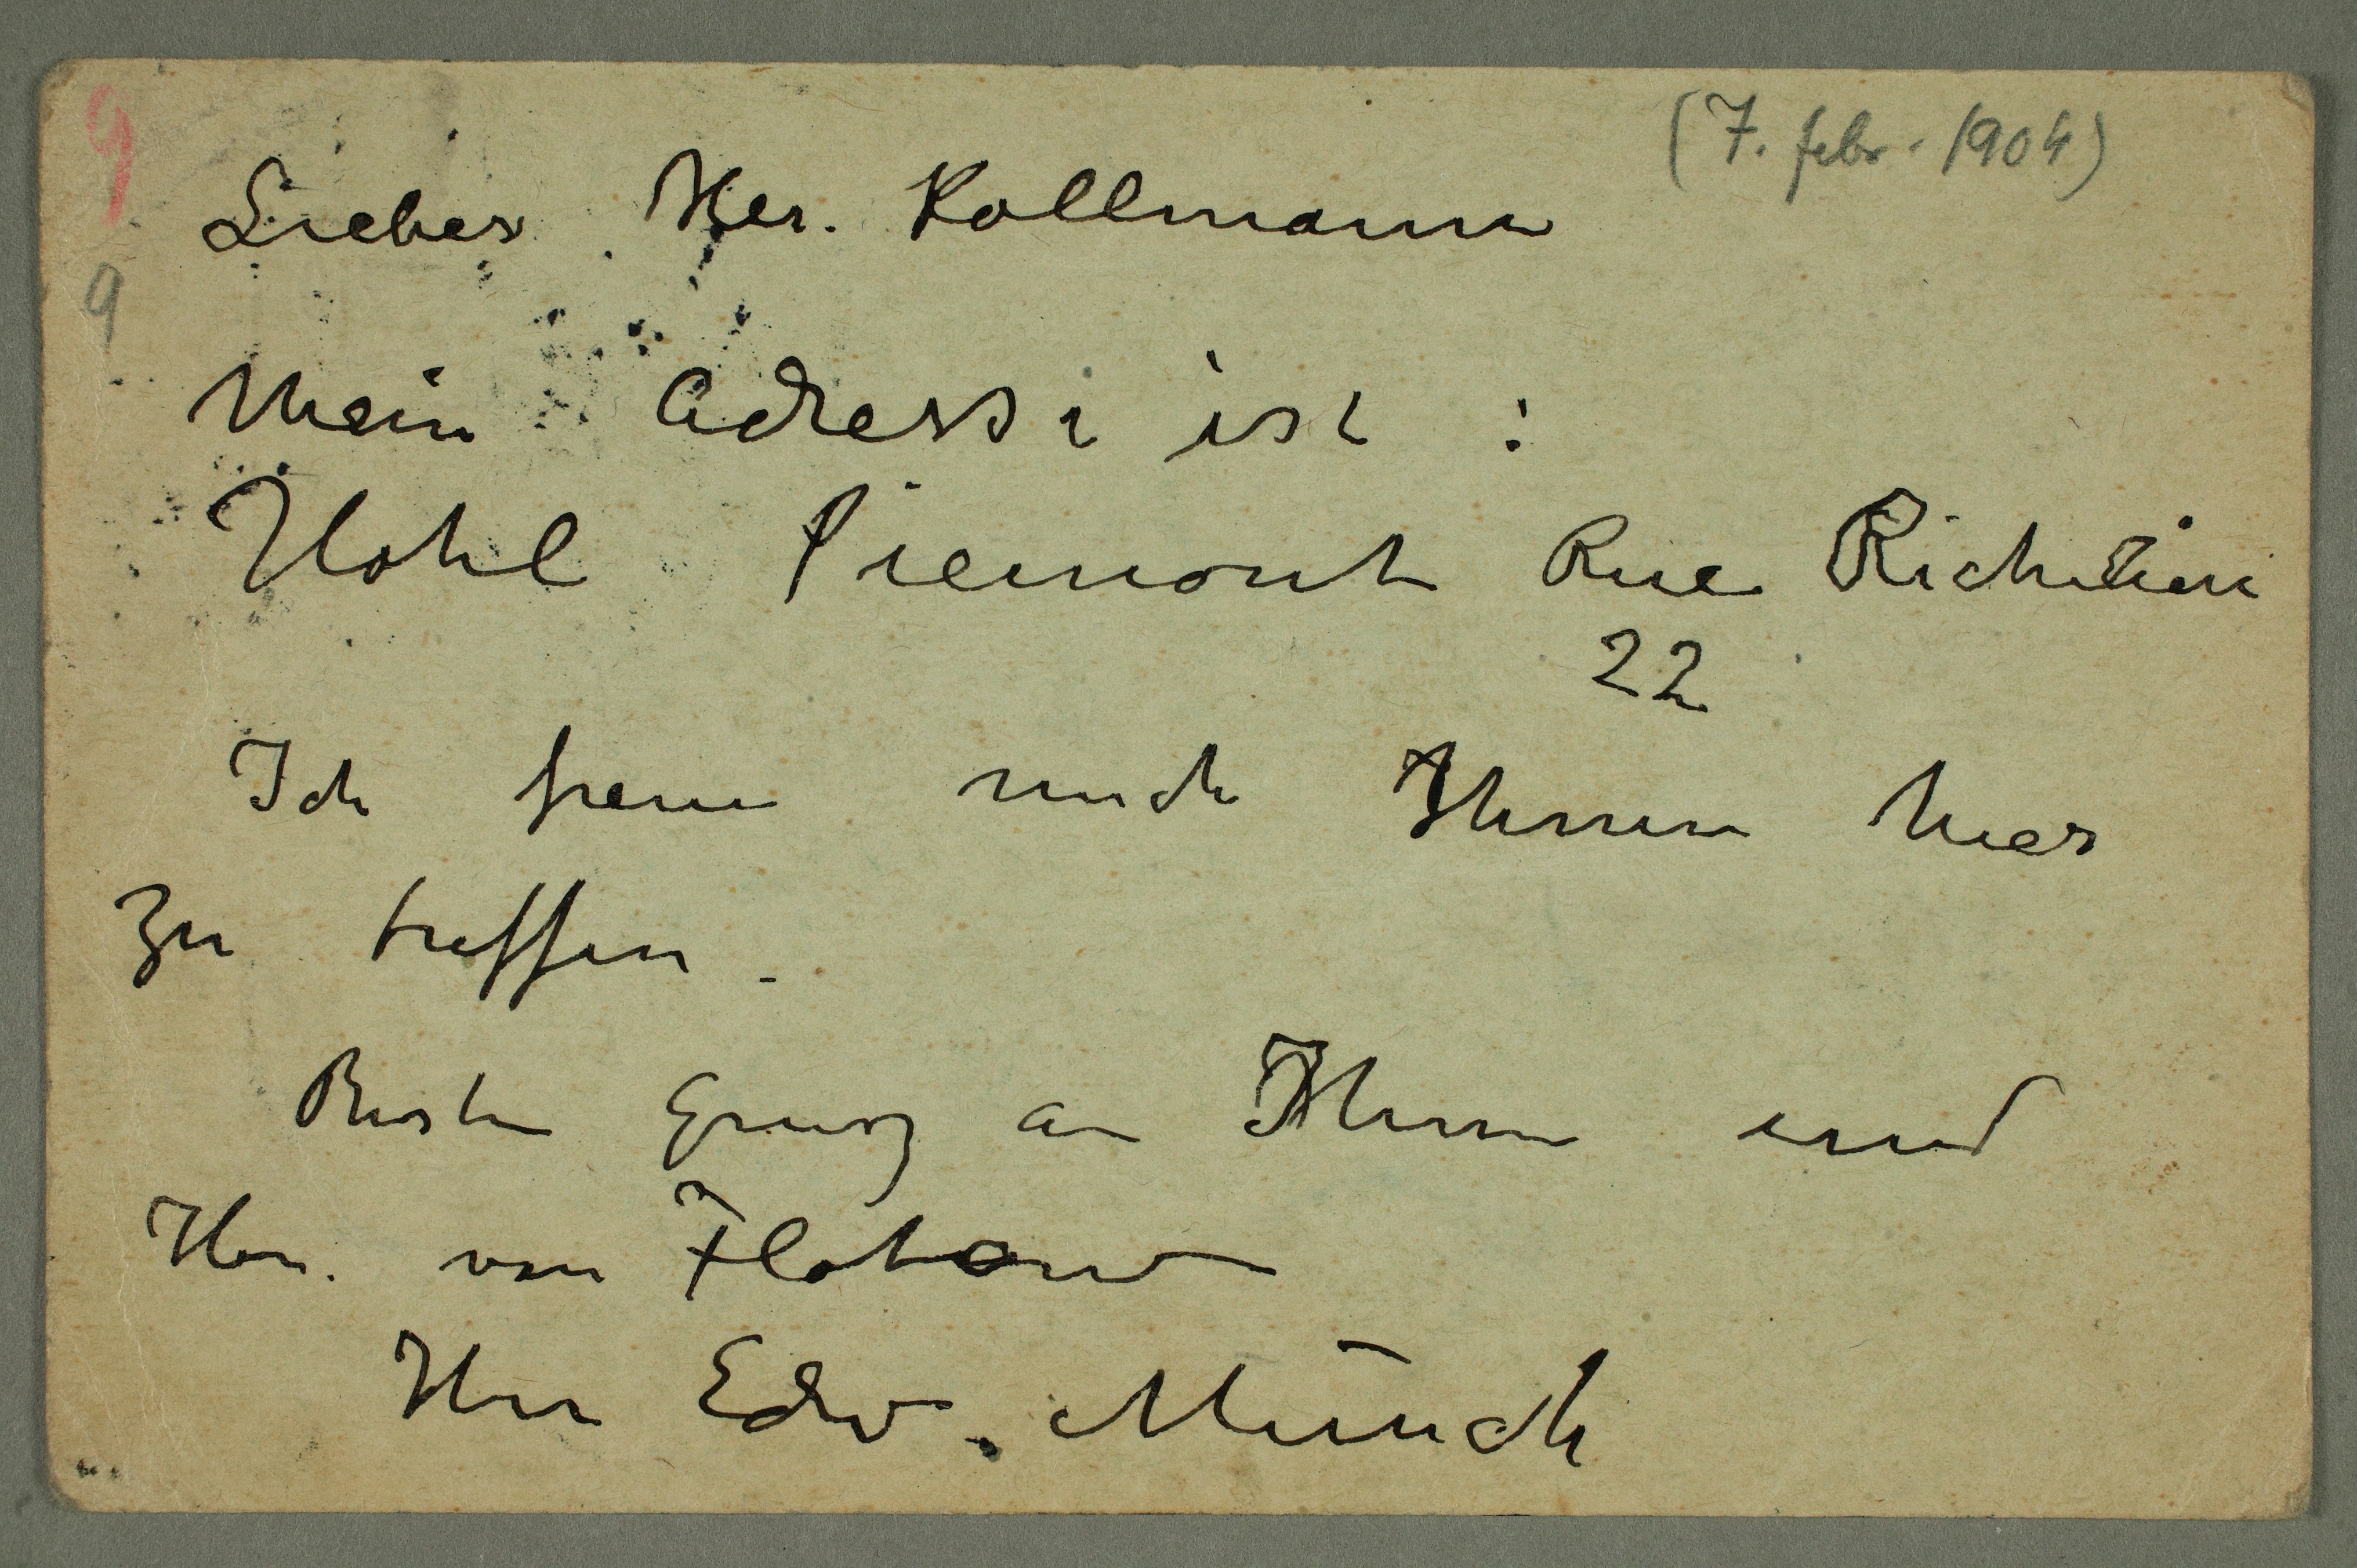 (7. febr. 1904)
9
Lieber Her. Kollmann
9
Mein Adresse ist :
Hotel Piemont Rue Richelieu
22
Ich freue mich Ihnen hier
zu treffen.
Besten Grusz an Ihnen und
Her. von Flotow
Ihr Edv. Munch